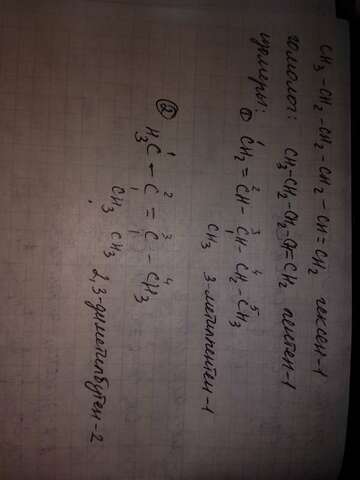 CH₃-CH₂-CH₂-CH₂-CH=CH₂ гексен-1
гомолог: CH₃-CH₂-CH₂-CH=CH₂ пентен-1
изомеры: ① 1 2 3 4 5
CH₂=CH-CH-CH₂-CH₃
CH₃ 3-метилпентен-1
② 1 2 3 4
H₃C-C=C-CH₃
CH₃ CH₃ 2,3-диметилбутен-2